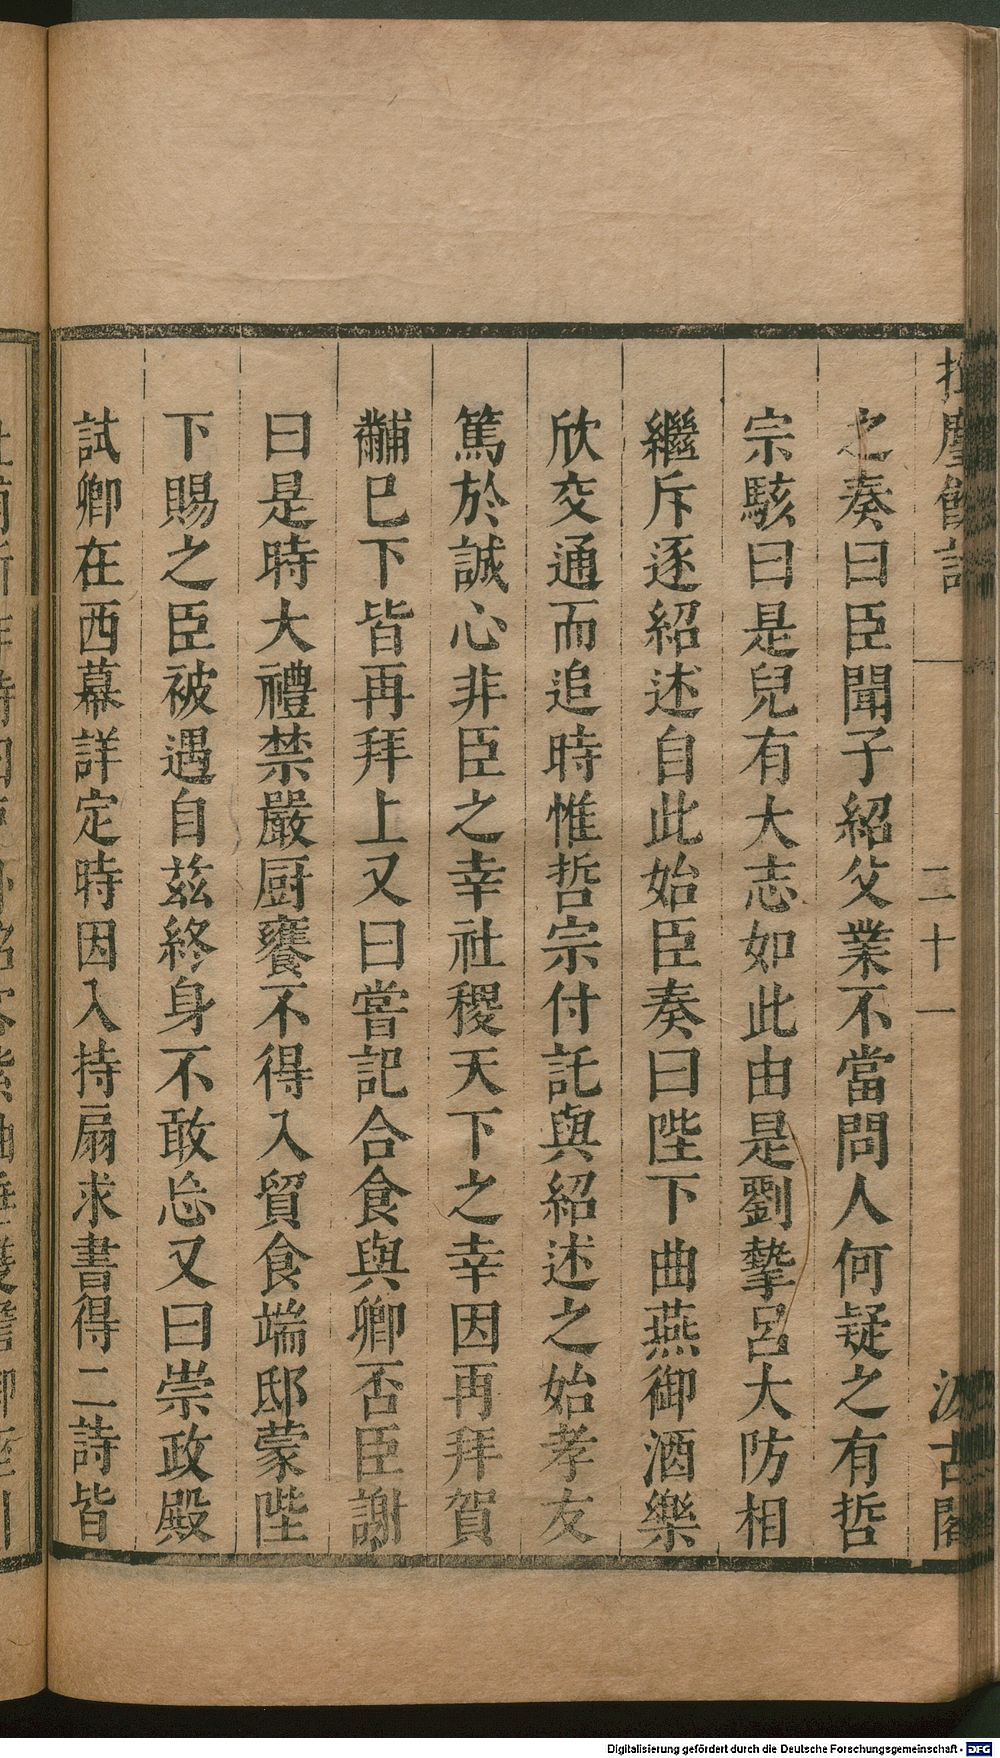 之奏曰臣聞子紹父業不當問人何疑之有哲
宗駭曰是兒有大志如此由是劉摯呂大防相
繼斥逐紹述自此始臣奏曰陛下曲燕御酒樂
欣交通而追時惟哲宗付託與紹述之始孝友
篤於誠心非臣之幸社稷天下之幸因再拜賀
黼巳下皆再拜上又曰嘗記合食與卿否臣謝
曰是時大禮禁嚴厨饔不得入貿食端邸蒙陛
下賜之臣被遇自玆終身不敢忘又曰崇政殿
試卿在西幕詳定時因入持扇求書得二詩皆
二十一
汲古閣
Digitalisierung gefördert durch die Deutsche Forschungsgemeinschaft - DFG